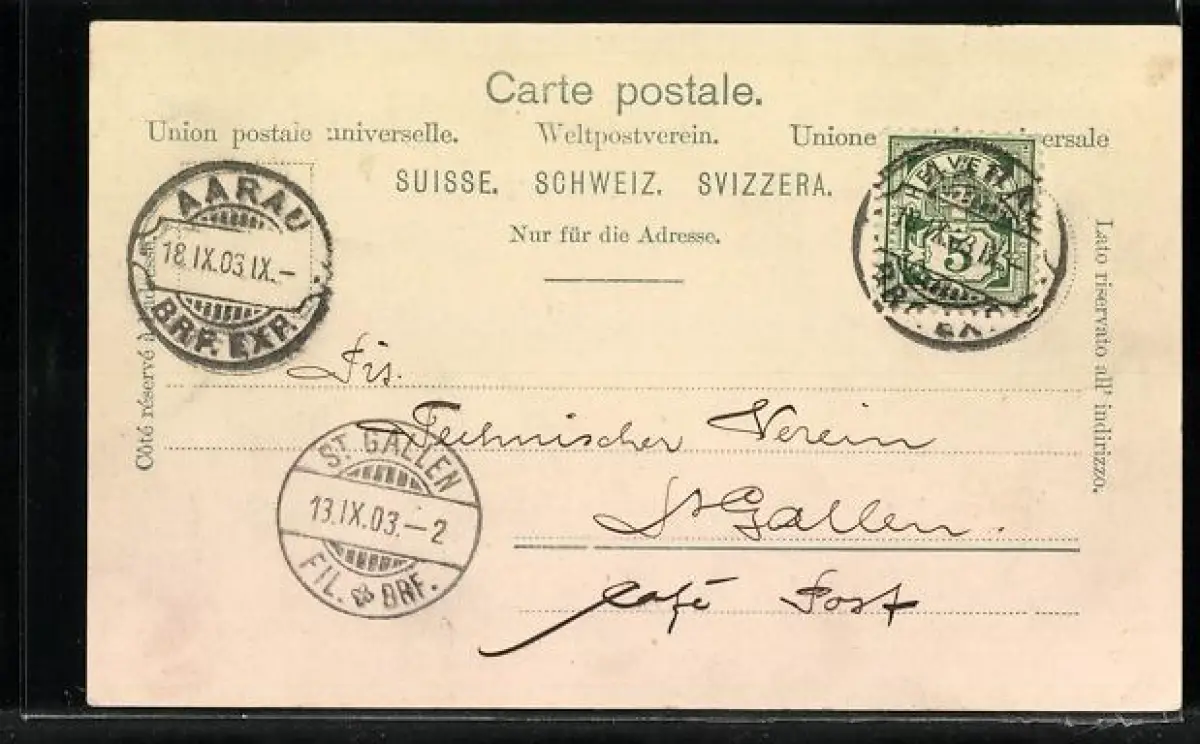 Carte postale.
Union postale universelle. Weltpostverein. Unione universale
SUISSE. SCHWEIZ. SVIZZERA.
Nur für die Adresse.
AARAU
18.IX.03.IX.–
BRF. EXP.
HELVETIA
5
BRF. EXP.
Côté réservé à
Lato riservato all' indirizzo.
Technischer Verein
St Gallen.
Café Post
ST. GALLEN
13.IX.03.–2
FIL. BRF.